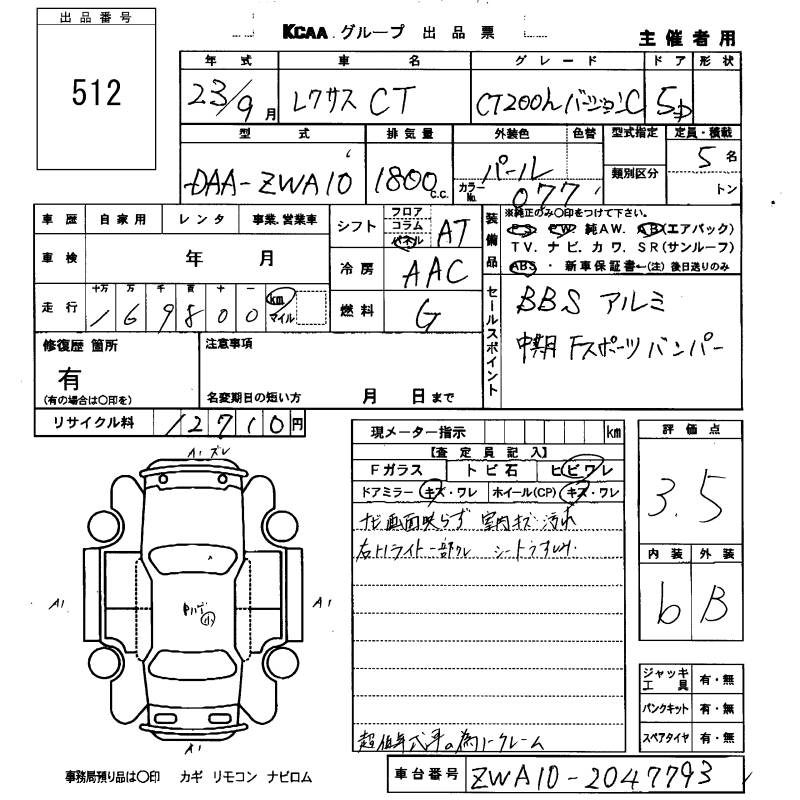 出品番号
512
KCAA グループ 出品票
主催者用
年式 車名 グレード ドア 形状
23/9月 レクサス CT CT200h バージョンC 5D
型式 排気量 外装色 色替 型式指定 定員・積載
DAA-ZWA10 1800 c.c. パール 類別区分 5名
カラーNo. 077 トン
車歴 自家用 レンタ 事業.営業車
シフト フロア コラム パネル AT
装備品 ※純正のみ〇印をつけて下さい。
PS PW 純AW. AB(エアバック)
TV. ナビ. カワ. SR(サンルーフ)
ABS ・ 新車保証書←(注) 後日送りのみ
車検 年 月
冷房 AAC
走行 十万 万 千 百 十 一
169800 km マイル
燃料 G
セールスポイント
BBS アルミ
中期 Fスポーツ バンパー
修復歴 箇所 注意事項
有
(有の場合は〇印を) 名変期日の短い方 月 日まで
リサイクル料 12710円
現メーター指示 km
【査定員記入】
Fガラス トビ石 ヒビワレ
ドアミラー キズ・ワレ ホイール(CP) キズ・ワレ
ナビ画面映らず 室内キズ 汚れ
右Hライト一部クレ
評価点
3.5
内装 外装
b B
A1 ズレ
A1 A1
小
A1
ジャッキ工具 有・無
パンクキット 有・無
スペアタイヤ 有・無
超低年式車の為ノークレーム
事務局預り品は〇印 カギ リモコン ナビロム
車台番号 ZWA10-2047793